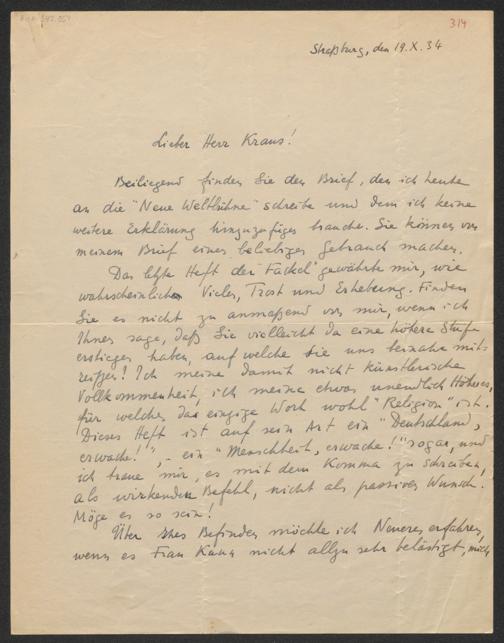 314
Straßburg, den 19.X.34
Lieber Herr Kraus!
Beiliegend finden Sie den Brief, den ich heute
an die "Neue Weltbühne" schreibe und dem ich keine
weitere Erklärung hinzuzufügen brauche. Sie können von
meinem Brief einen beliebigen Gebrauch machen.
Das letzte Heft der Fackel gewährte mir, wie
wahrscheinlich Vielen, Trost und Erhebung. Finden
Sie es nicht zu anmaßend von mir, wenn ich
Ihnen sage, daß Sie vielleicht da eine höhere Stufe
erstiegen haben, auf welche Sie uns beinahe mit-
reißen! Ich meine damit nicht künstlerische
Vollkommenheit, ich meine etwas unendlich Höheres,
für welches das einzige Wort wohl "Religion" ist.
Dieses Heft ist auf sein Art ein "Deutschland,
erwache!", - ein "Menschheit, erwache!" sogar, und
ich traue mir, es mit dem Komma zu schreiben,
als wirkenden Befehl, nicht als passiven Wunsch.
Möge es so sein!
Über Ihr Befinden möchte ich Neueres erfahren,
wenn es Frau Kann nicht allzu sehr belästigt, mich